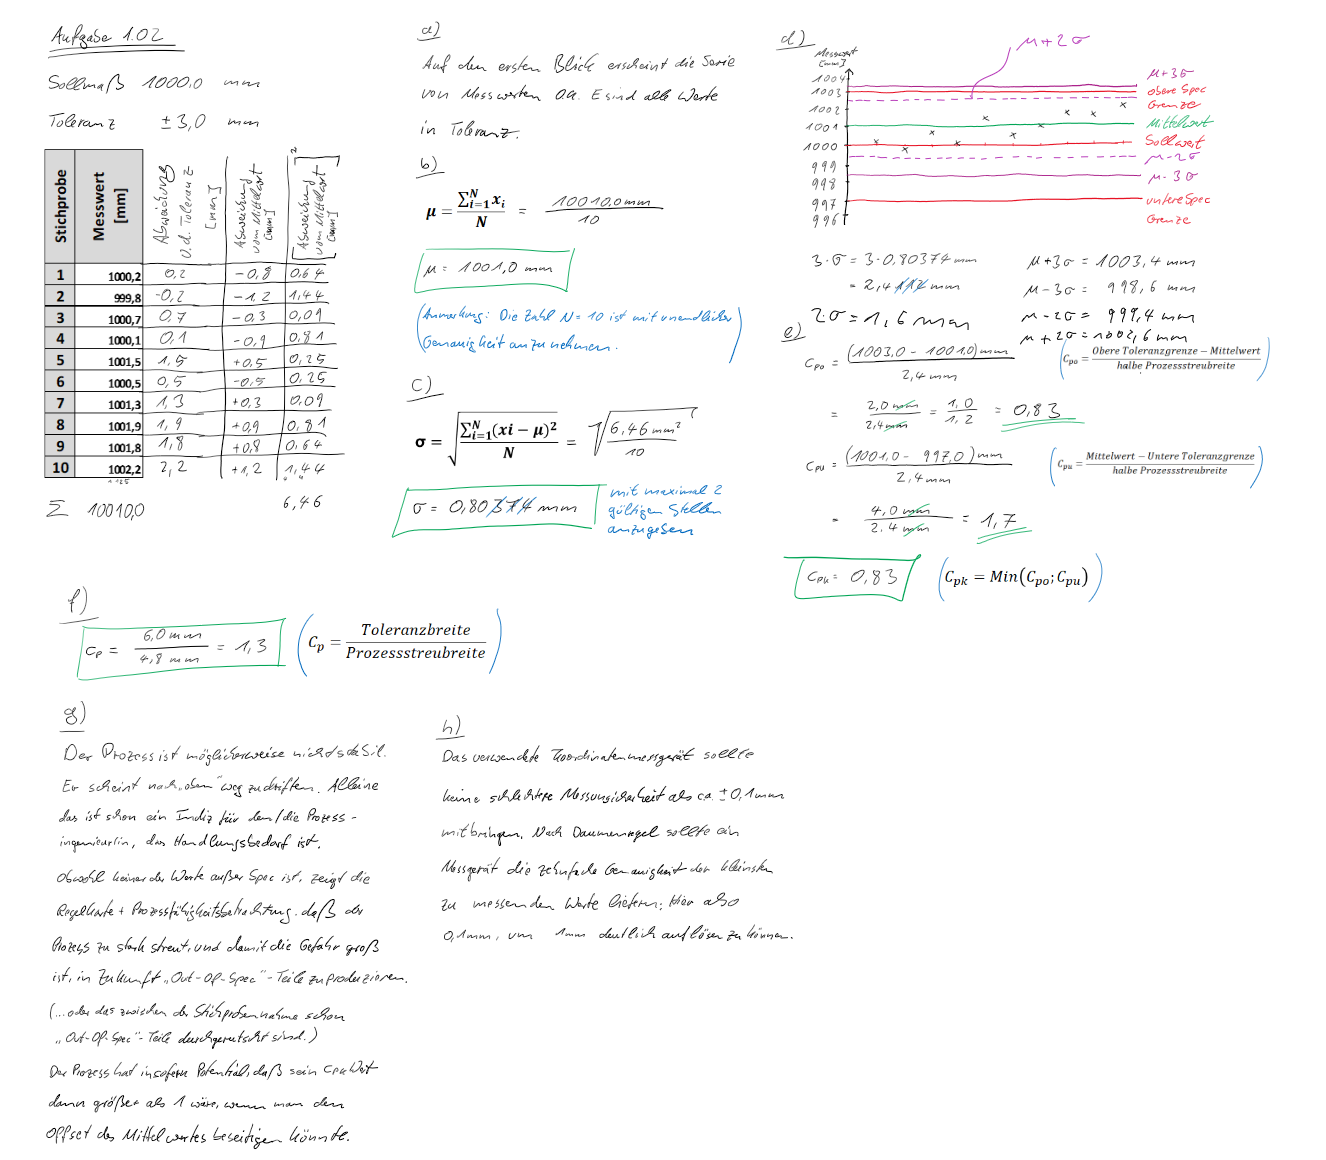 Aufgabe 1.02
Sollmaß 1000,0 mm
Toleranz ± 3,0 mm
Stichprobe | Messwert [mm] | Abweichung v.d. Toleranz [mm] | Abweichung vom Mittelwert [mm] | [Abweichung vom Mittelwert [mm]]²
1 | 1000,2 | 0,2 | -0,8 | 0,64
2 | 999,8 | -0,2 | -1,2 | 1,44
3 | 1000,7 | 0,7 | -0,3 | 0,09
4 | 1000,1 | 0,1 | -0,9 | 0,81
5 | 1001,5 | 1,5 | +0,5 | 0,25
6 | 1000,5 | 0,5 | -0,5 | 0,25
7 | 1001,3 | 1,3 | +0,3 | 0,09
8 | 1001,9 | 1,9 | +0,9 | 0,81
9 | 1001,8 | 1,8 | +0,8 | 0,64
10 | 1002,2 | 2,2 | +1,2 | 1,44
Σ 10010,0 6,46
a)
Auf den ersten Blick erscheint die Serie
von Messwerten o.a. E sind alle Werte
in Toleranz.
b)
μ = ∑ᴺᵢ₌₁ xᵢ / N = 10010,0 mm / 10
μ = 1001,0 mm
(Anmerkung: Die Zahl N = 10 ist mit unendlicher
Genauigkeit anzunehmen.)
c)
σ = √(∑ᴺᵢ₌₁(xi − μ)² / N) = √(6,46 mm² / 10)
σ = 0,80374 mm
mit maximal 2
gültigen Stellen
anzugeben
d)
μ+2σ
Messwert [mm]
1004
1003
1002
1001
1000
999
998
997
996
μ+3σ
obere Spec
Grenze
Mittelwert
Sollwert
μ-2σ
μ-3σ
untere Spec
Grenze
3·σ = 3·0,80374 mm
= 2,4112 mm
2σ = 1,6 mm
μ+3σ = 1003,4 mm
μ-3σ = 998,6 mm
μ-2σ = 999,4 mm
μ+2σ = 1002,6 mm
e)
Cpo = (1003,0 - 1001,0) mm / 2,4 mm
(Cpo = Obere Toleranzgrenze − Mittelwert / halbe Prozessstreubreite)
= 2,0 mm / 2,4 mm = 1,0 / 1,2 = 0,83
Cpu = (1001,0 - 997,0) mm / 2,4 mm
(Cpu = Mittelwert − Untere Toleranzgrenze / halbe Prozessstreubreite)
= 4,0 mm / 2,4 mm = 1,7
Cpk = 0,83
(Cpk = Min(Cpo; Cpu))
f)
Cp = 6,0 mm / 4,8 mm = 1,3
(Cp = Toleranzbreite / Prozessstreubreite)
g)
Der Prozess ist möglicherweise nicht stabil.
Er scheint nach „oben" weg zu driften. Alleine
das ist schon ein Indiz für den/die Prozess-
ingenieur/in, das Handlungsbedarf ist.
Obwohl keiner der Werte außer Spec ist, zeigt die
Regelkarte + Prozessfähigkeitsbetrachtung, daß der
Prozess zu stark streut, und damit die Gefahr groß
ist, in Zukunft „Out-Of-Spec"-Teile zu produzieren.
(...oder das zwischen der Stichprobennahme schon
„Out-Of-Spec"-Teile durchgerutscht sind.)
Der Prozess hat insofern Potential, daß sein Cpk Wert
dann größer als 1 wäre, wenn man den
Offset des Mittelwertes beseitigen könnte.
h)
Das verwendete Koordinatenmessgerät sollte
keine schlechtere Messunsicherheit als ca. ± 0,1 mm
mitbringen. Nach Daumenregel sollte ein
Messgerät die zehnfache Genauigkeit der kleinsten
zu messenden Werte liefern; Hier also
0,1 mm, um 1 mm deutlich auflösen zu können.